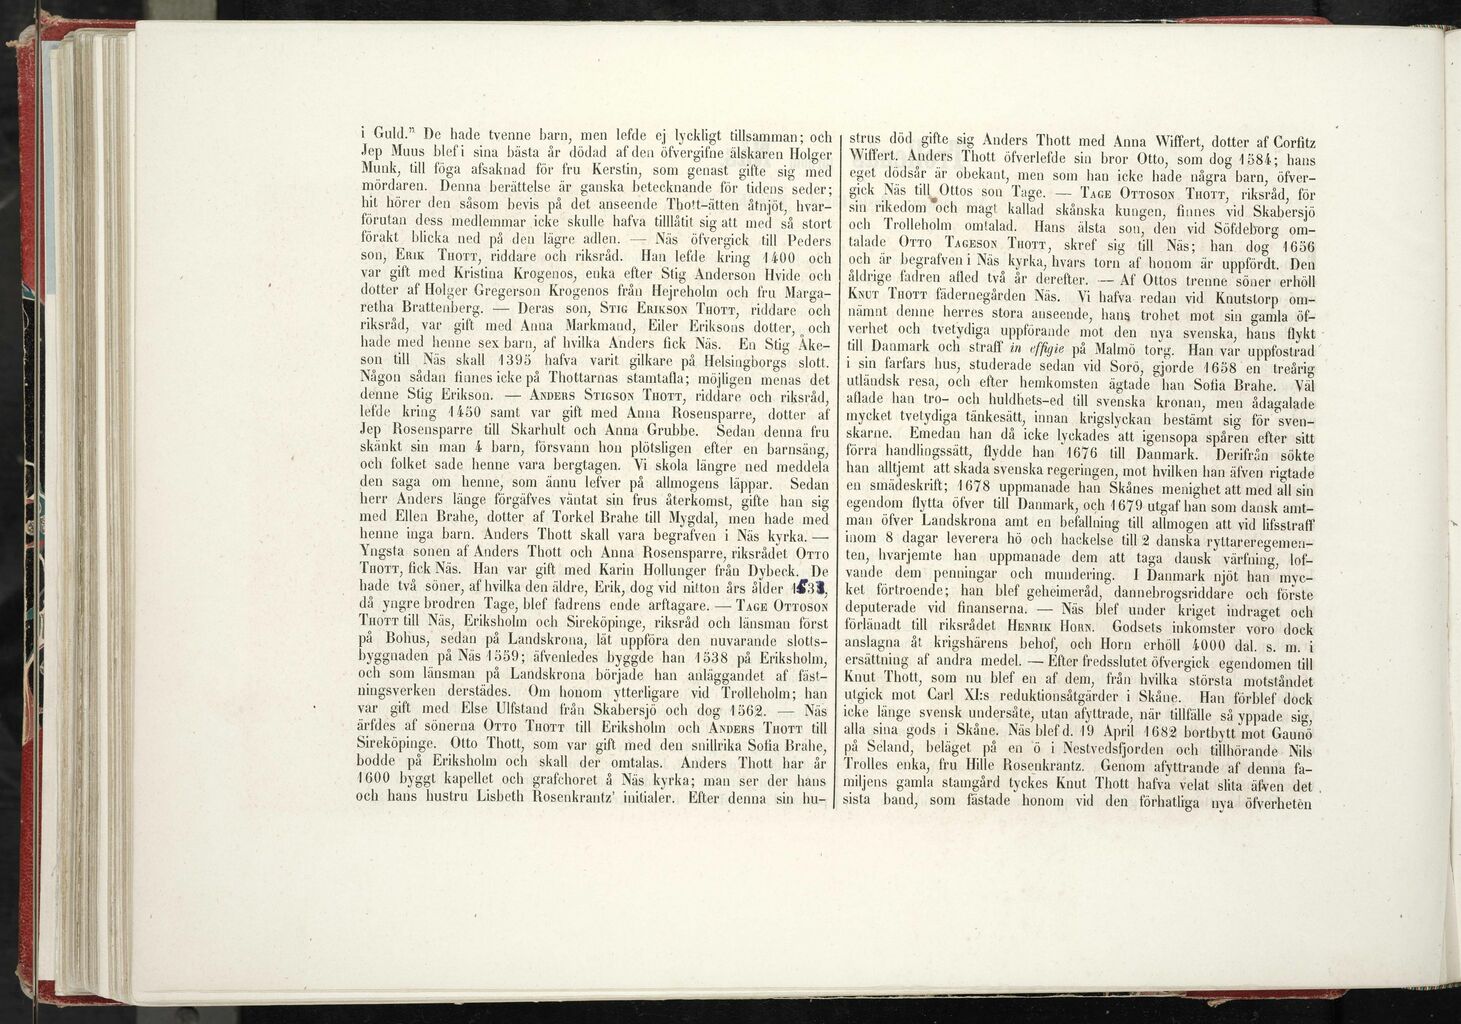 i Guld." De hade tvenne barn, men lefde ej lyckligt tillsamman; och
Jep Muus blef i sina bästa år dödad af den öfvergifne älskaren Holger
Munk, till föga afsaknad för fru Kerstin, som genast gifte sig med
mördaren. Denna berättelse är ganska betecknande för tidens seder;
hit hörer den såsom bevis på det anseende Thott-ätten åtnjöt, hvar-
förutan dess medlemmar icke skulle hafva tilllåtit sig att med så stort
förakt blicka ned på den lägre adlen. — Näs öfvergick till Peders
son, ERIK THOTT, riddare och riksråd. Han lefde kring 1400 och
var gift med Kristina Krogenos, enka efter Stig Anderson Hvide och
dotter af Holger Gregerson Krogenos från Hejreholm och fru Marga-
retha Brattenberg. — Deras son, STIG ERIKSON THOTT, riddare och
riksråd, var gift med Anna Markmand, Eiler Eriksons dotter, och
hade med henne sex barn, af hvilka Anders fick Näs. En Stig Åke-
son till Näs skall 1395 hafva varit gilkare på Helsingborgs slott.
Någon sådan finnes icke på Thottarnas stamtafla; möjligen menas det
denne Stig Erikson. — ANDERS STIGSON THOTT, riddare och riksråd,
lefde kring 1450 samt var gift med Anna Rosensparre, dotter af
Jep Rosensparre till Skarhult och Anna Grubbe. Sedan denna fru
skänkt sin man 4 barn, försvann hon plötsligen efter en barnsäng,
och folket sade henne vara bergtagen. Vi skola längre ned meddela
den saga om henne, som ännu lefver på allmogens läppar. Sedan
herr Anders länge förgäfves väntat sin frus återkomst, gifte han sig
med Ellen Brahe, dotter af Torkel Brahe till Mygdal, men hade med
henne inga barn. Anders Thott skall vara begrafven i Näs kyrka. —
Yngsta sonen af Anders Thott och Anna Rosensparre, riksrådet OTTO
THOTT, fick Näs. Han var gift med Karin Hollunger från Dybeck. De
hade två söner, af hvilka den äldre, Erik, dog vid nitton års ålder
då yngre brodren Tage, blef fadrens ende arftagare. — TAGE OTTOSON
THOTT till Näs, Eriksholm och Sireköpinge, riksråd och länsman först
på Bohus, sedan på Landskrona, lät uppföra den nuvarande slotts-
byggnaden på Näs 1559; äfvenledes byggde han 1538 på Eriksholm,
och som länsman på Landskrona började han anläggandet af fäst-
ningsverken derstädes. Om honom ytterligare vid Trolleholm; han
var gift med Else Ulfstand från Skabersjö och dog 1562. — Näs
ärfdes af sönerna OTTO THOTT till Eriksholm och ANDERS THOTT till
Sireköpinge. Otto Thott, som var gift med den snillrika Sofia Brahe,
bodde på Eriksholm och skall der omtalas. Anders Thott har år
1600 byggt kapellet och grafchoret å Näs kyrka; man ser der hans
och hans hustru Lisbeth Rosenkrantz' initialer. Efter denna sin hu-
strus död gifte sig Anders Thott med Anna Wiffert, dotter af Corfitz
Wiffert. Anders Thott öfverlefde sin bror Otto, som dog 1584; hans
eget dödsår är obekant, men som han icke hade några barn, öfver-
gick Näs till Ottos son Tage. — TAGE OTTOSON THOTT, riksråd, för
sin rikedom och magt kallad skånska kungen, finnes vid Skabersjö
och Trolleholm omtalad. Hans älsta son, den vid Söfdeborg om-
talade OTTO TAGESON THOTT, skref sig till Näs; han dog 1656
och är begrafven i Näs kyrka, hvars torn af honom är uppfördt. Den
åldrige fadren afled två år derefter. — Af Ottos trenne söner erhöll
KNUT THOTT fädernegården Näs. Vi hafva redan vid Knutstorp om-
nämnt denne herres stora anseende, hans trohet mot sin gamla öf-
verhet och tvetydiga uppförande mot den nya svenska, hans flykt
till Danmark och straff in effigie på Malmö torg. Han var uppfostrad
i sin farfars hus, studerade sedan vid Sorö, gjorde 1658 en treårig
utländsk resa, och efter hemkomsten ägtade han Sofia Brahe. Väl
aflade han tro- och huldhets-ed till svenska kronan, men ådagalade
mycket tvetydiga tänkesätt, innan krigslyckan bestämt sig för sven-
skarne. Emedan han då icke lyckades att igensopa spåren efter sitt
förra handlingssätt, flydde han 1676 till Danmark. Derifrån sökte
han alltjemt att skada svenska regeringen, mot hvilken han äfven rigtade
en smädeskrift; 1678 uppmanade han Skånes menighet att med all sin
egendom flytta öfver till Danmark, och 1679 utgaf han som dansk amt-
man öfver Landskrona amt en befallning till allmogen att vid lifsstraff
inom 8 dagar leverera hö och hackelse till 2 danska ryttareregemen-
ten, hvarjemte han uppmanade dem att taga dansk värfning, lof-
vande dem penningar och mundering. I Danmark njöt han myc-
ket förtroende; han blef geheimeråd, dannebrogsriddare och förste
deputerade vid finanserna. — Näs blef under kriget indraget och
förlänadt till riksrådet HENRIK HORN. Godsets inkomster voro dock
anslagna åt krigshärens behof, och Horn erhöll 4000 dal. s. m. i
ersättning af andra medel. — Efter fredsslutet öfvergick egendomen till
Knut Thott, som nu blef en af dem, från hvilka största motståndet
utgick mot Carl XI:s reduktionsåtgärder i Skåne. Han förblef dock
icke länge svensk undersåte, utan afyttrade, när tillfälle så yppade sig,
alla sina gods i Skåne. Näs blef d. 19 April 1682 bortbytt mot Gaunö
på Seland, beläget på en ö i Nestvedsfjorden och tillhörande Nils
Trolles enka, fru Hille Rosenkrantz. Genom afyttrande af denna fa-
miljens gamla stamgård tyckes Knut Thott hafva velat slita äfven det
sista band, som fästade honom vid den förhatliga nya öfverheten